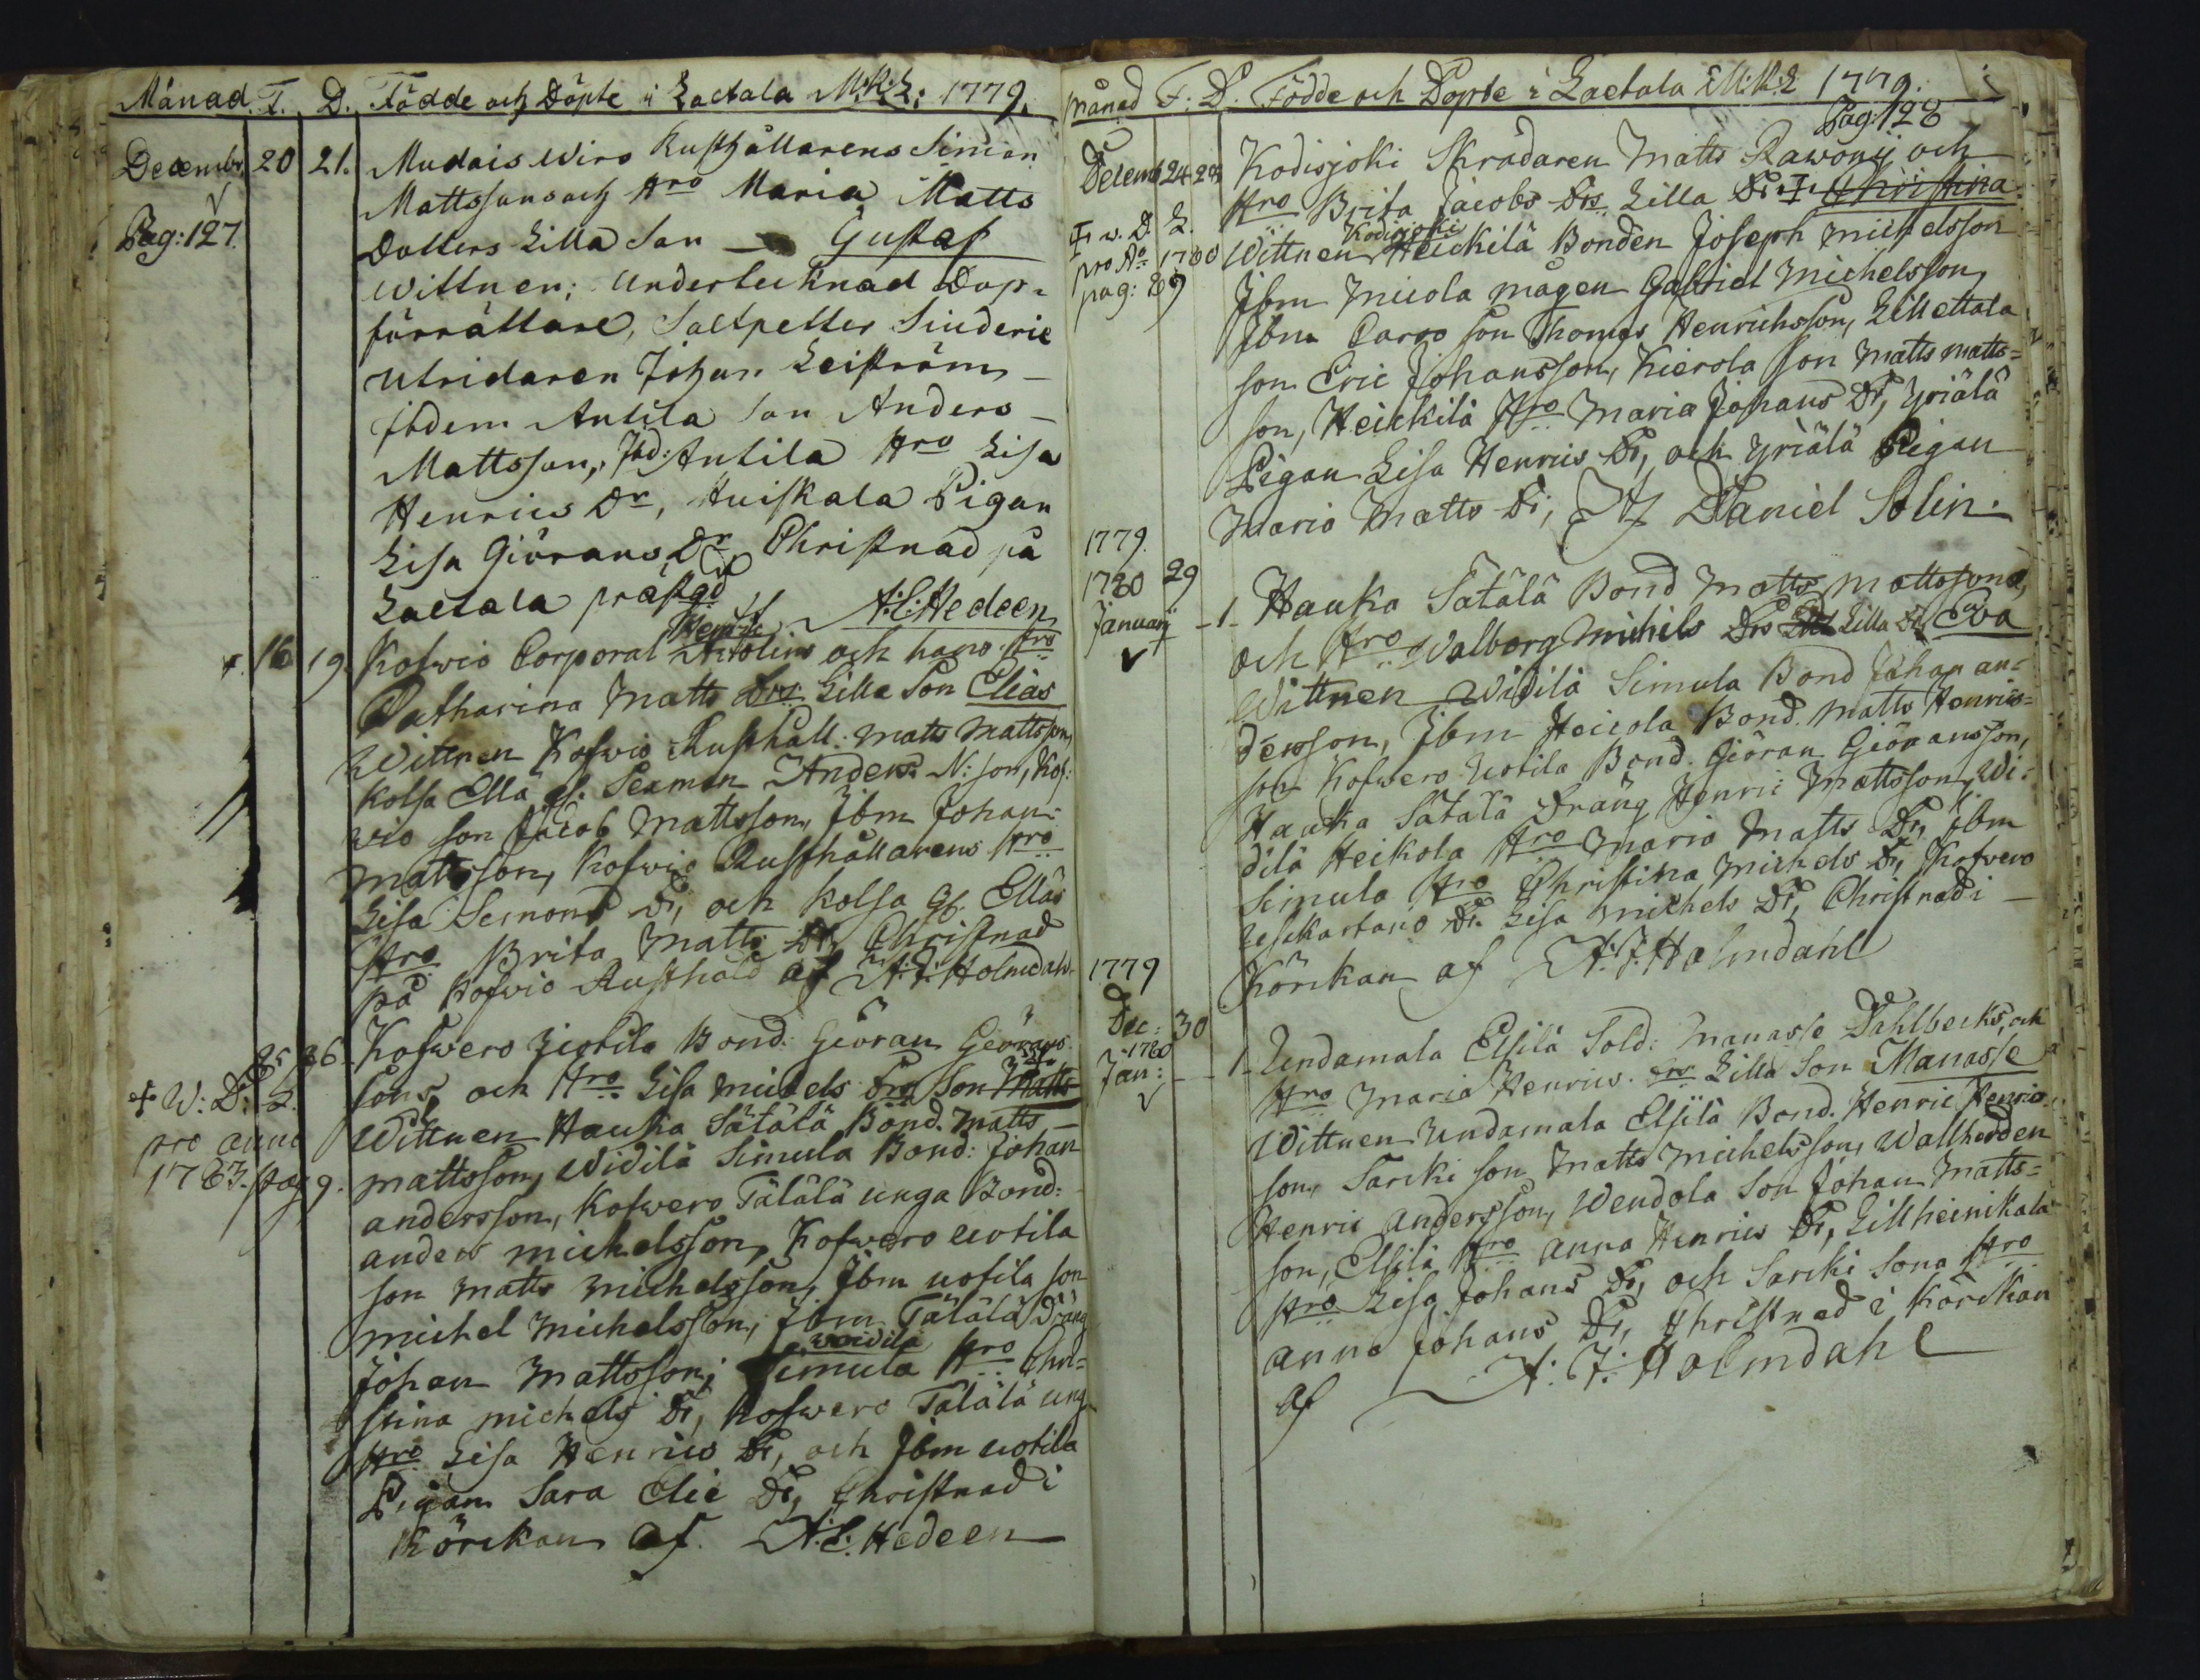 Månad. F. D. Födde och Döpte i Laetala M:K:L: 1779.
Decembr. 20 21. Mudais Wiro Rusthållarens Simon
Pag: 127
Mattssons och Hro Maria Matts
Dotters Lilla Son — Gustaf
Wittnen; Undertecknad Dop-
förrättare, Saltpetter Siuderie
Utridaren Johan Leiström
Ibdem Antila Son Anders
Mattsson, Ibd: Antila Hro Lisa
Henrics Dr, Huiskala Pigan
Lisa Giörans Dr Christnad på
Laetala prästgd A:C:Hedeen
16 19. Kofwio Corporal och hans Hro
Catharina Matts Drs Lilla Son Elias
Wittnen Kofwio Rusthåll: Matts Mattsson,
Kolsa Ella gf. Seaman Anders N:son, Kof:
wio son Jacob Mattsson, Ibm Johan
Mattsson, Kofwio Rusthållarens Hro
Lisa Semons Dr, och Kolsa gf. Ellas
Hro Brita Matts Dr, Christnad
på Kofwio Rusthåld af A:J:Holmdahl
25 26. Kofwero Uotila Bond: Giöran Giörans
W: D: L.
sons, och Hro Lisa Michels Drs Son Matts
pro anno
Wittnen Hauka Sätälä Bond. Matts
1783. pag 9.
Mattsson, Widilä Simula Bond: Johan
andersson, Kofwero Tälälä unga Bond:
anders Michelsson, Kofwero uotila
son Matts Michelsson, Ibm uotila son
Michel Michelsson, Ibm Tälälä Dräng
weidila
Johan Mattsson; Simula Hro Chri-
stina Michels Dr, Kofwero Tälälä ung
Hro Lisa Henrics Dr, och Ibm uotila
Pigan Sara Elie Dr, Christnad i
Körckan af. A:C:Hedeen
Månad F. D. Födde och Döpte i Laetala M:K:L 1779.
Pag: 128
Decemb 24 28 Kodisjoki Skrädaren Matts Rawony och
Hro Brita Jacobs Drs Lilla Dr Christina
w. D. L.
Kodisjoki
pro Ao 1780 Wittnen Heickilä Bonden Joseph Michelsson
pag: 89
Ibm Nicola mågen Gabriel Michelsson,
Ibm Parso son Thomas Henrichsson, Lillettala
son Eric Johansson, Kierola son Matts Matts-
son, Heickilä Hro Maria Johans Dr, Yriälä
Pigan Lisa Henrics Dr, och Yriälä Pigan
Maria Matts Dr, Af Daniel Solin.
1779.
1780 29
Januarii 1 Hauka Sätälä Bond Matts Mattssons,
och Hro Walborg Michels Drs Lilla Dr Eva
Wittnen Widilä Simula Bond Johan an-
dersson, Ibm Heicola Bond. Matts Henrics-
son Kofwero Uotila Bond. Giöran Giöransson,
Hauka Sätälä Dräng Henric Mattsson, Wi-
dilä Heikola Hro Maria Matts Dr, Ibm
Simula Hro Christina Michels Dr, Kofwero
Dr. Lisa Michels Dr, Christnad i
Körckan af A:J:Holmdahl
1779
Dec: 30
1780
Jan: 1 Undamala Elsilä Sold: Manasse Dahlbecks, och
Hro Maria Henrics Drs Lilla Son Manasse
Wittnen Undamala Elsilä Bond. Henric Henrics-
son, Sarcki son Matts Michelsson, Wallherdden
Henric andersson, Wendola Son Johan Matts-
son, Elsilä Hro anna Henrics Dr, Lillheinikala
Hro Lisa Johans Dr, och Sarcki Sona Hro
anna Johans Dr, Christnad i Körckan
af A:J:Holmdahl